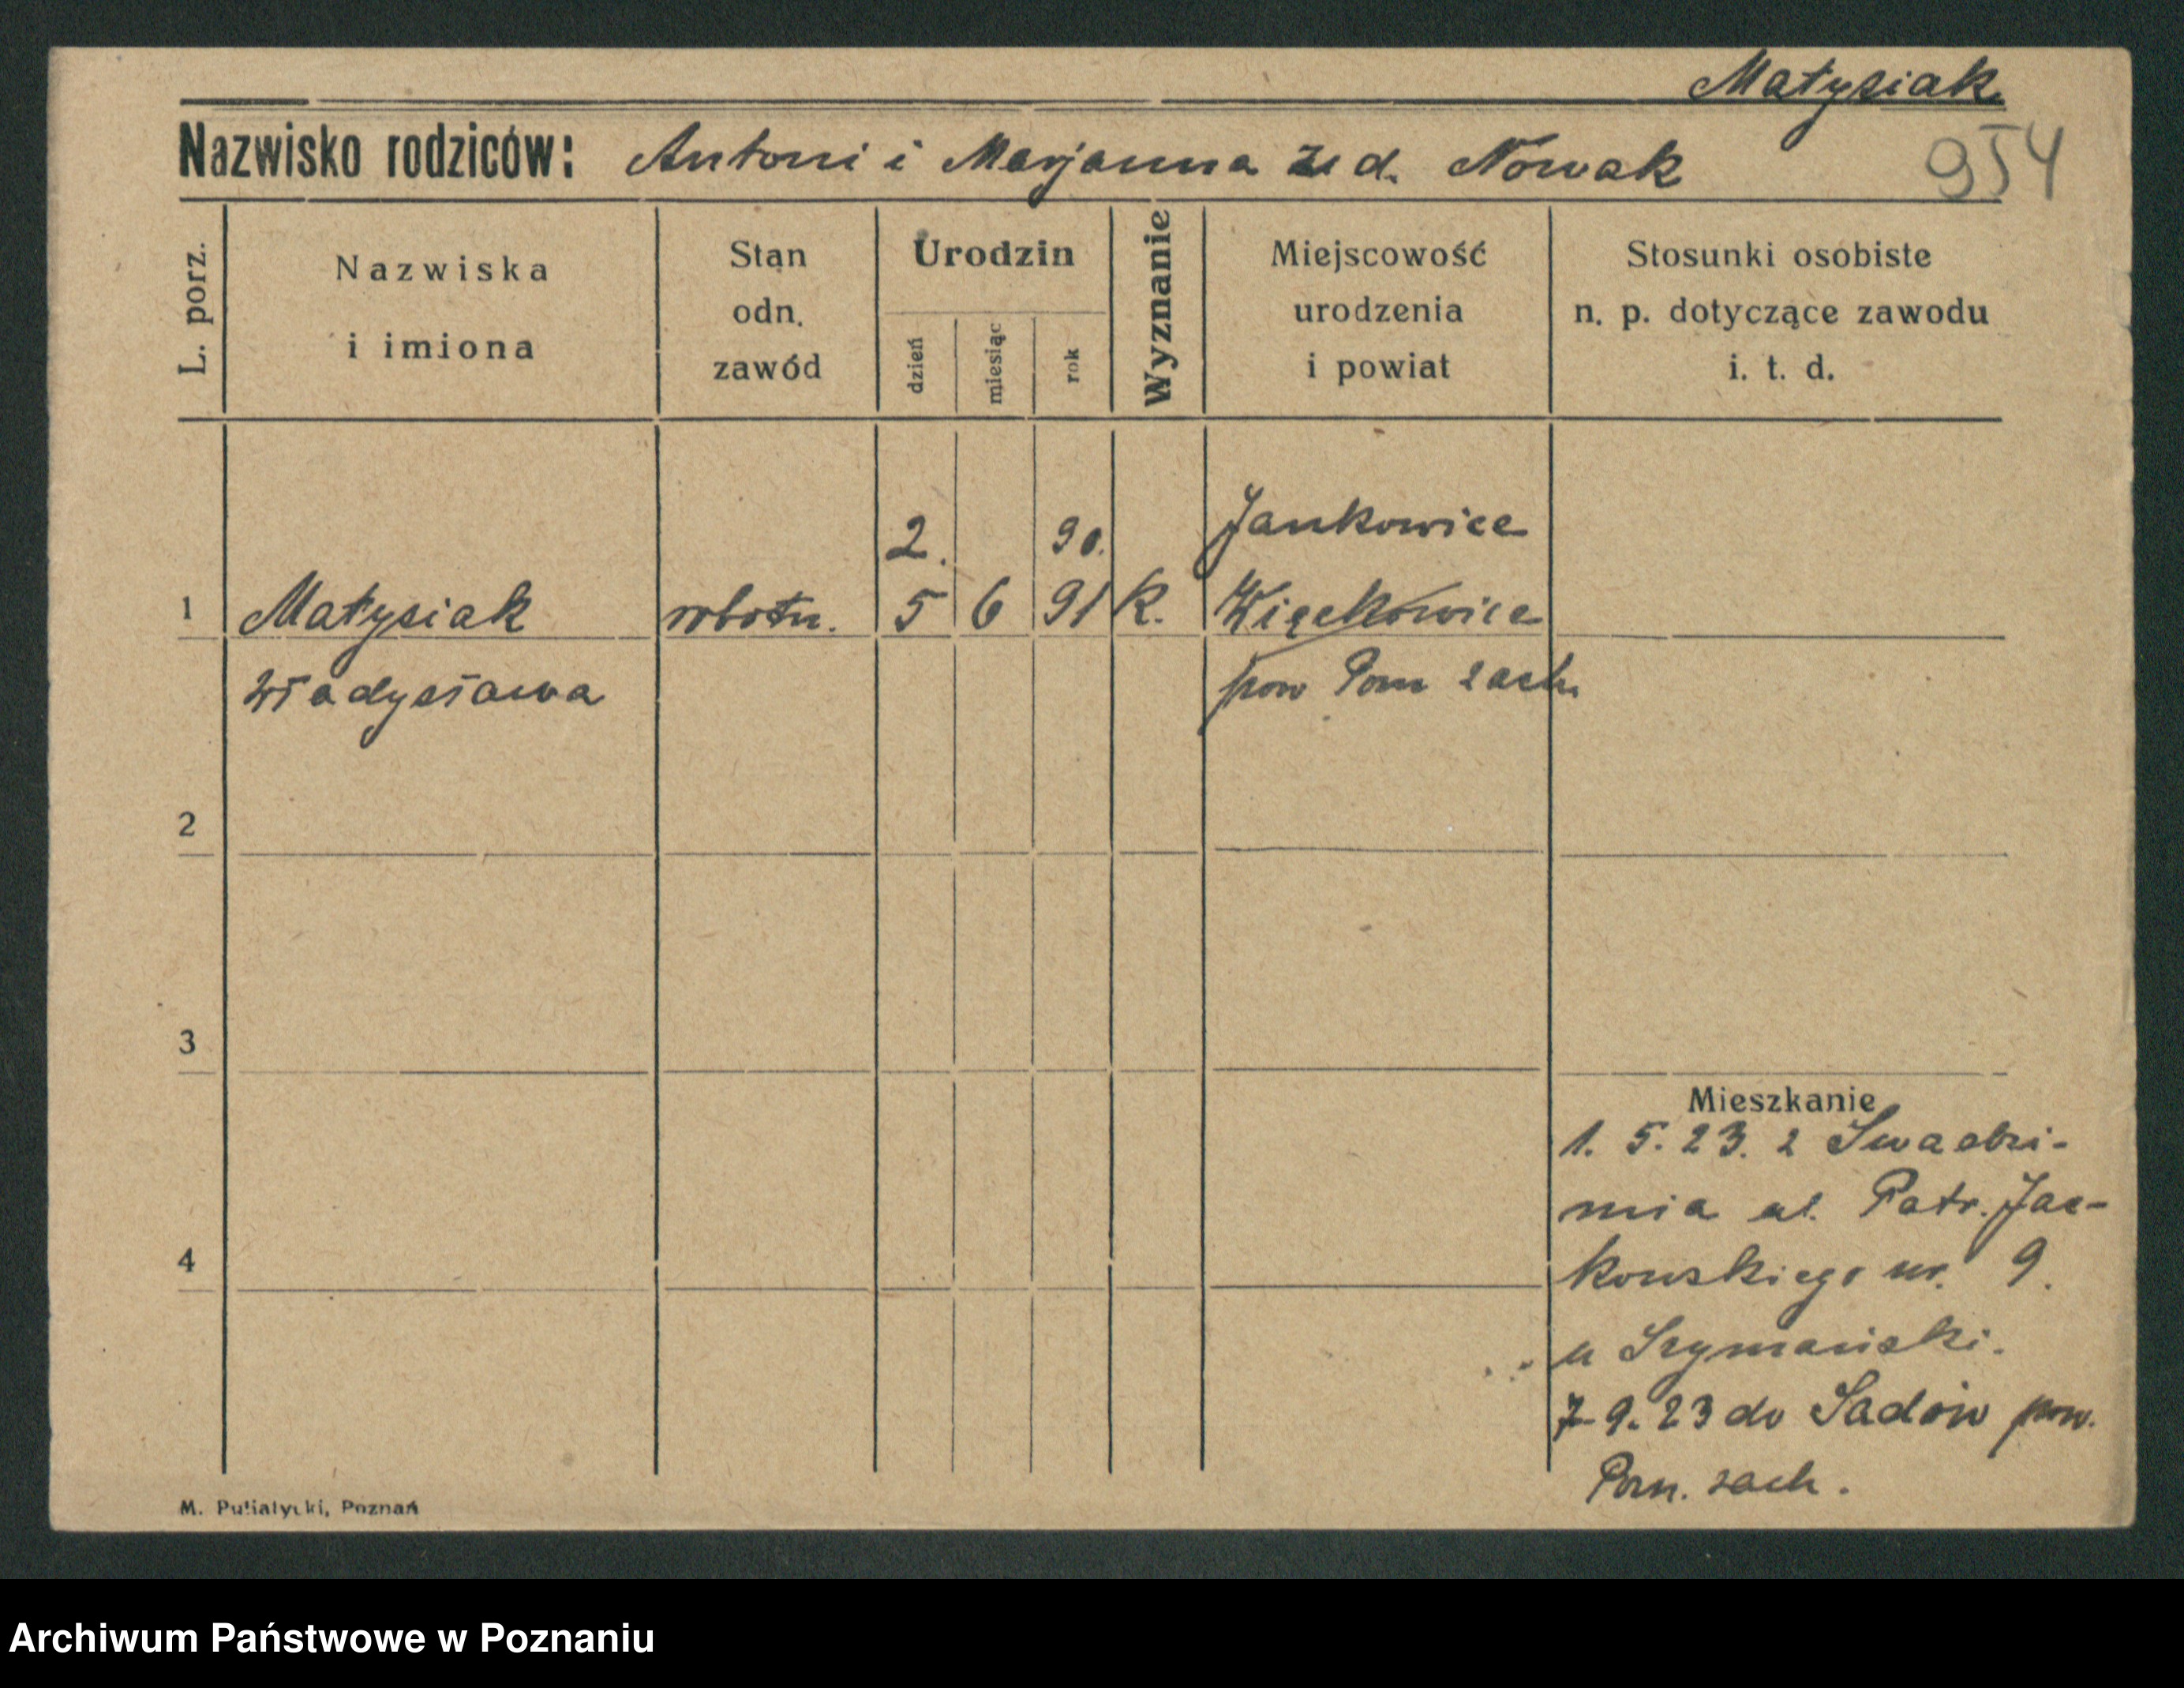 Matysiak
Nazwisko rodziców: Antoni i Marjanna zd. Nowak
954
L. porz.
Nazwiska
i imiona
Stan
odn.
zawód
Urodzin
dzień
miesiąc
rok
Wyznanie
Miejscowość
urodzenia
i powiat
Stosunki osobiste
n. p. dotyczące zawodu
i. t. d.
2. 90. Jankowice
1 Matysiak robotn. 5 6 91 k. Więckowice
Władysława pow Pozn zach.
2
3
Mieszkanie
1. 5. 23. z Swadzi-
mia ul. Patr. Jac-
4
kowskiego nr. 9.
u Szymański.
7-9. 23 do Sadów pow.
Pozn. zach.
M. Putiatycki, Poznań
Archiwum Państwowe w Poznaniu